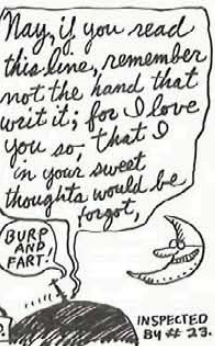 Nay, if you read
this line, remember
not the hand that
writ it; for I love
you so, that I
in your sweet
thoughts would be
forgot,
BURP
AND
FART!
INSPECTED
BY # 23.